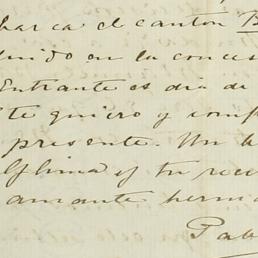 bar ca el canton B
uido en la conces
Entrante es dia de
te quiero y comp
presente. Un b
lfhina y tu reci
amante herma
Pab